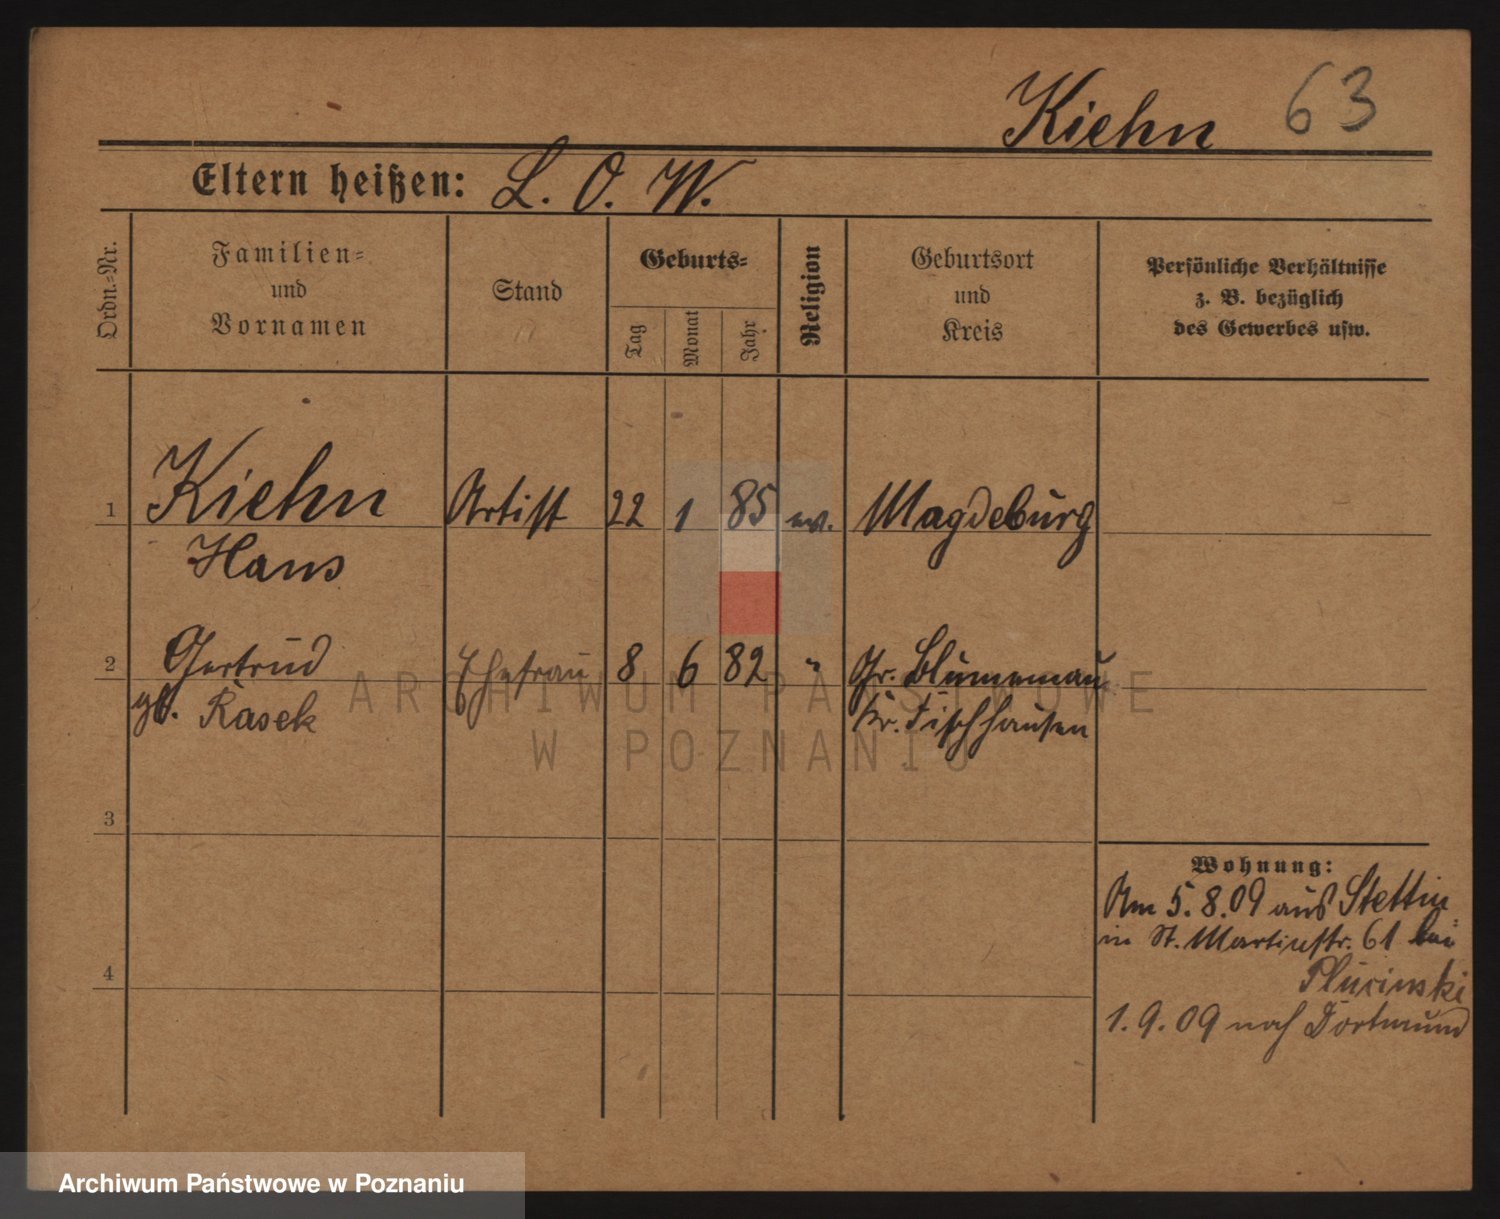 Kiehn 63
Eltern heißen: L. O. W.
Ordn.-Nr.
Familien-
und
Vornamen
Stand
Geburts-
Tag
Monat
Jahr
Religion
Geburtsort
und
Kreis
Persönliche Verhältnisse
z. B. bezüglich
des Gewerbes usw.
1 Kiehn Artist 22 1 85 ev. Magdeburg
Hans
2 Gertrud Ehefrau 8 6 82 " Gr. Blumenau
gb. Rasek Kr. Fischhausen
3
4
Wohnung:
Am 5.8.09 aus Stettin
in St. Martinstr. 61 bei
Plucinski
1.9.09 nach Dortmund
ARCHIWUM PAŃSTWOWE
W POZNANIU
Archiwum Państwowe w Poznaniu